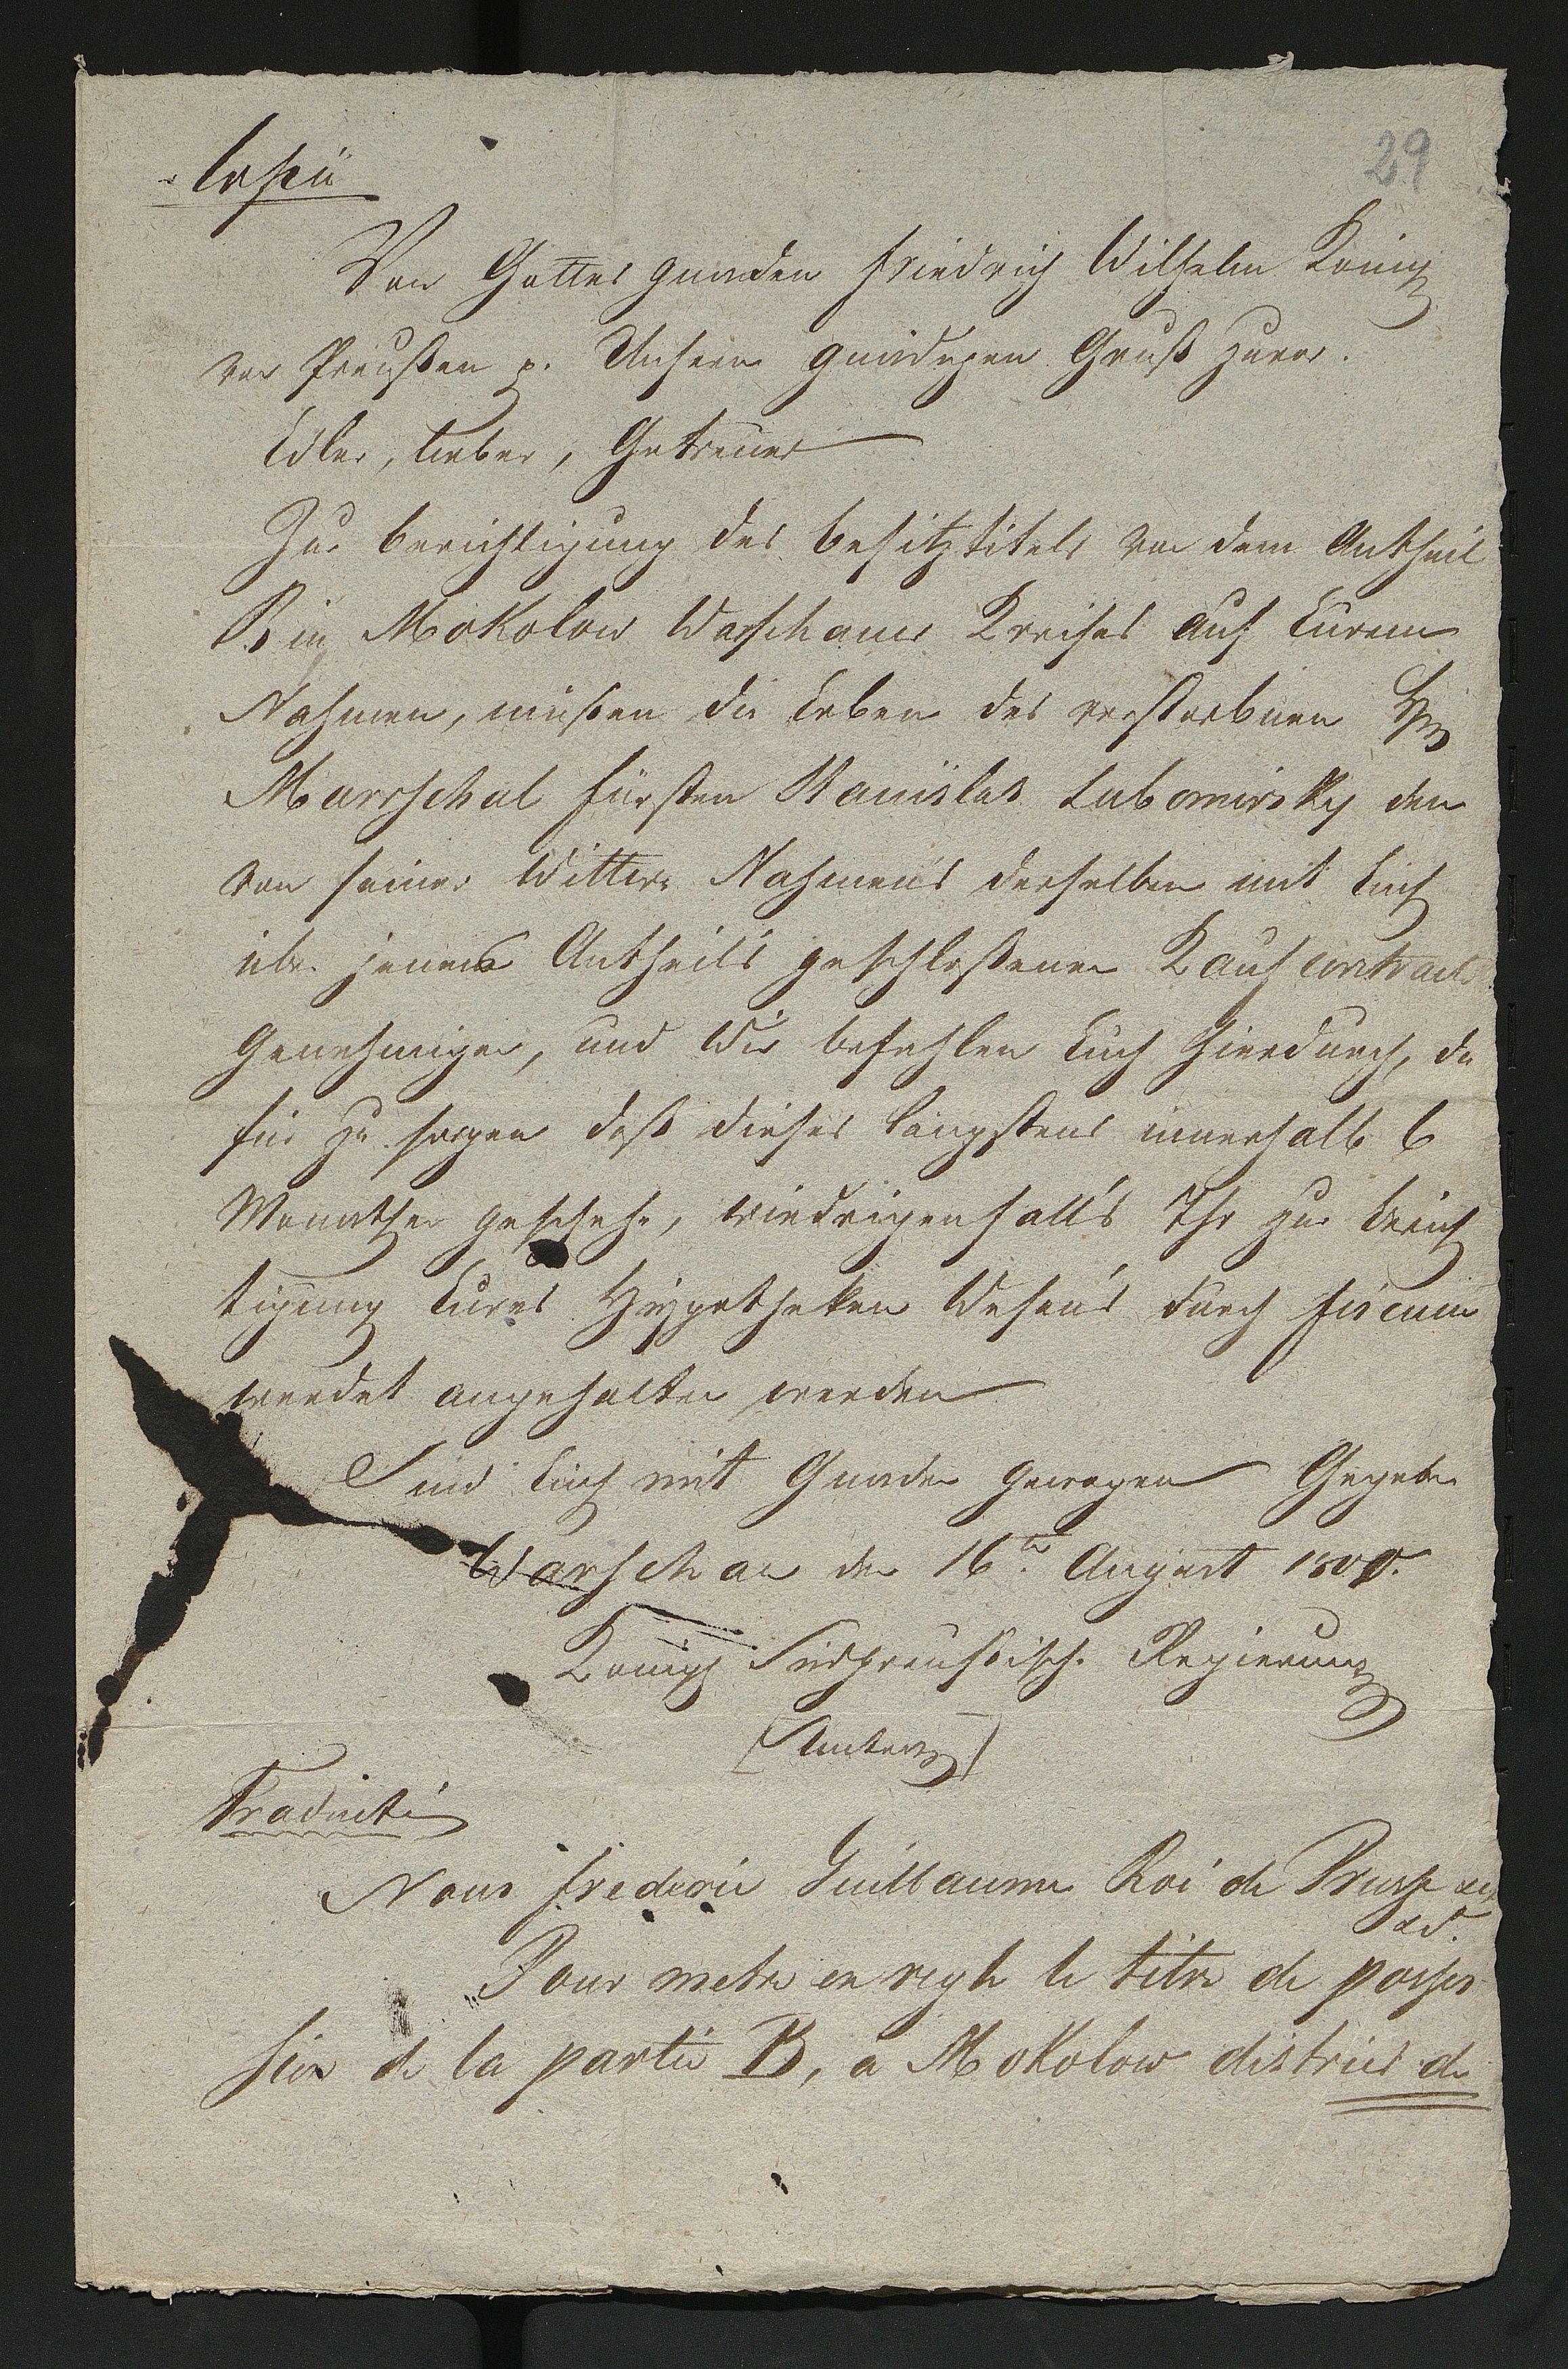 29
Copia
Von Gottes gnaden Friedrich Wilhelm König
von Preußen p. Unsern gnädigen Gruß zuvor.
Edler, lieber, Getreuer
Zur berichtigung des besitztitels von dem Antheil
B in Mokolow Warschauer Kreises auf Eurem
Nahmen, müßen die Erben des verstorbenen
Marrschal Fürsten Stanislas Lubomirsky den
von seiner Wittwe Nahmens derselben mit Euch
über jenes Antheils geschloßenen Kaufcontract
Genehmigen, und Wir befehlen Euch hierdurch, da
für zu sorgen daß dieses längstens innerhalb 6
Monathen geschehe, wiedrigenfalls Ihr zur berich
tigung Eures Hypotheken Wesens durch fiscum
werdet angehalten werden
Sind Euch mit Gnaden gewogen Gegeben
Warschau den 16ten August 1800.
Königl Südpreußisch. Regierung
Traduité
Nous frederic Guillaume Roi de Prusse
Pour metre en regle le titre de posses
sion de la partie B, a Mokolow district de